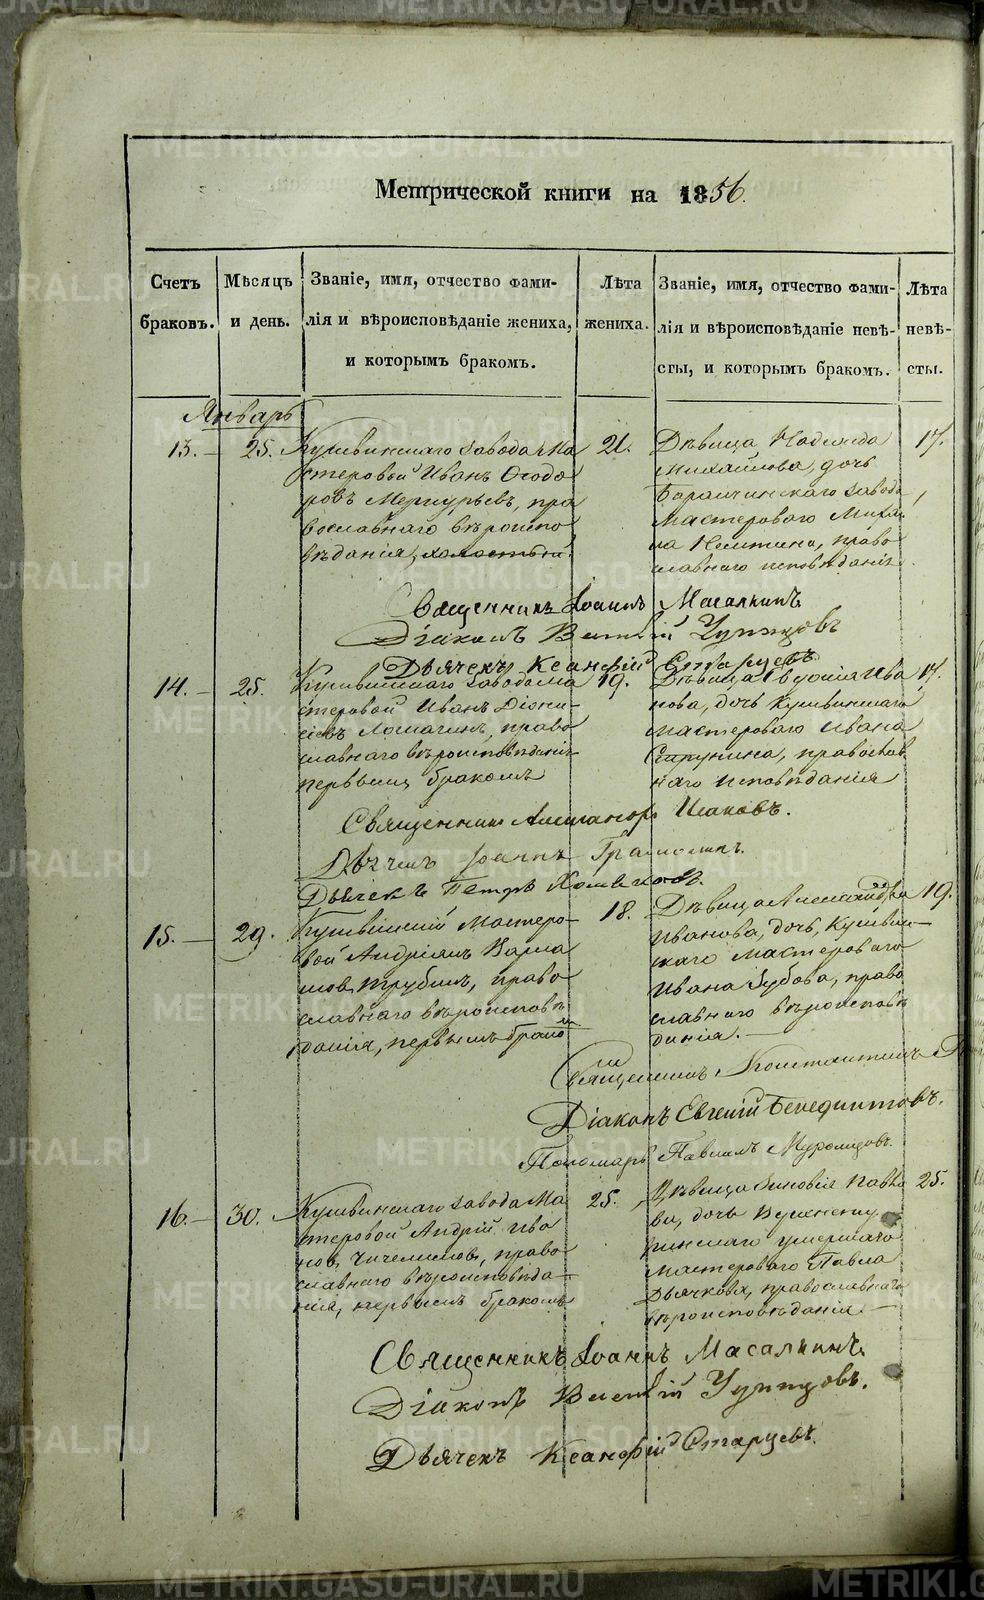 Метрической книги на 1856.
Счетъ браковъ.
Мѣсяцъ и день.
Званіе, имя, отчество фами-
лія и вѣроисповѣданіе жениха,
и которымъ бракомъ.
Лѣта
жениха.
Званіе, имя, отчество фами-
лія и вѣроисповѣданіе невѣ-
сты, и которымъ бракомъ.
Лѣта
невѣ-
сты.
Январь
13. — 25.
Кушвинскаго завода Ма
стеровой Иванъ Ѳеодо
ровъ Меркурьевъ, пра
вославнаго вѣроиспо
вѣданія, холостый.
21.
Дѣвица Надежда
Михайлова, дочь
Баранчинскаго завода
мастероваго Михаи
ла Никитина, право
славнаго исповѣданія
17.
Священникъ Іоаннъ Масалкинъ
Діаконъ Виталій Удинцовъ
Дьячекъ Ксанфій Старцевъ
14. — 25.
Кушвинскаго завода Ма
стеровой Иванъ Діони-
сіевъ Ломагинъ, право
славнаго вѣроисповѣданія
первымъ бракомъ
19.
Дѣвица Евдокія Ива
нова, дочь Кушвинскаго
мастероваго Ивана
православ
наго исповѣданія
17.
Священникъ Александръ Исаковъ.
Іоаннъ
Дьячекъ Петръ Хомяковъ.
15. — 29.
Кушвинскій мастеро-
вой Андріянъ Варла
мовъ Трубинъ, право
славнаго вѣроисповѣ
данія, первымъ бракомъ
18.
Дѣвица Александра
Иванова, дочь Кушвин—
скаго мастероваго
Ивана Зубова, право
славнаго вѣроисповѣ
данія. —
19.
Священникъ Константинъ
Діаконъ Евгеній Бенедиктовъ.
Пономарь Павелъ
16. — 30.
Кушвинскаго завода Ма
стеровой Андрей Ива
новъ Чичелиновъ, право
славнаго вѣроисповѣда—
нія, первымъ бракомъ
25.
Дѣвица Зиновія Павло
ва, дочь
умершаго
мастероваго Павла
Дьячкова, православнаго
вѣроисповѣданія —
25.
Священникъ Іоаннъ Масалкинъ.
Діаконъ Виталій Удинцовъ.
Дьячекъ Ксанфій Старцевъ.
METRIKI.GASO-URAL.RU